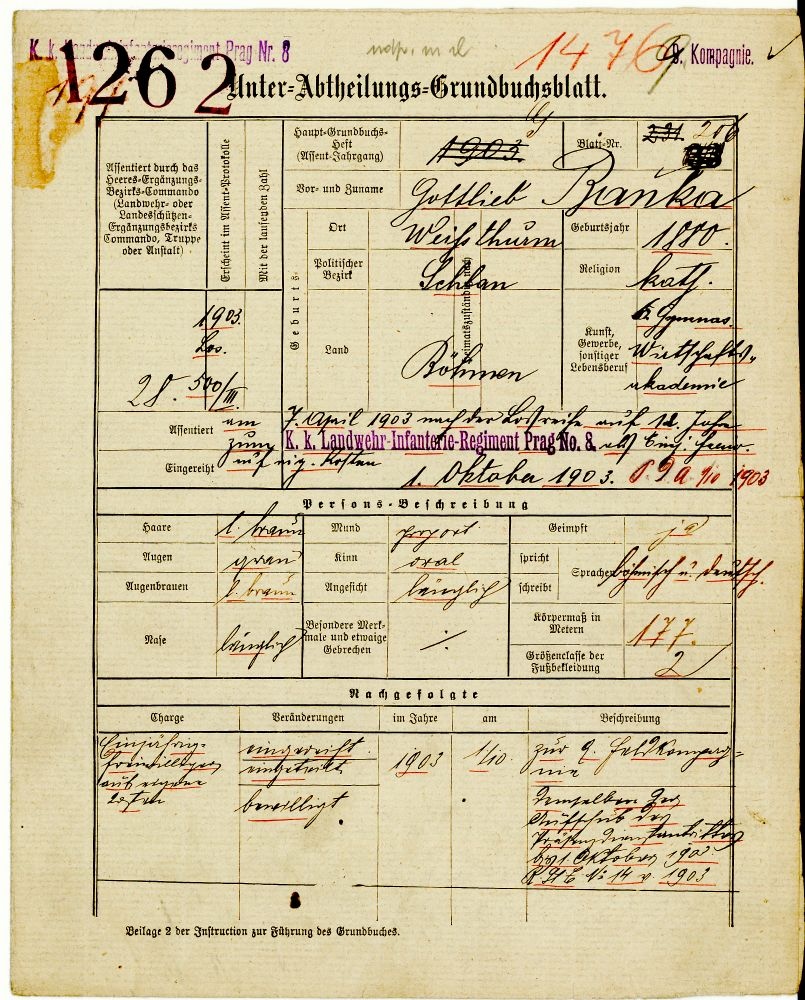 K. k. Landwehrinfanterieregiment Prag Nr. 8
1476
9. Kompagnie.
1262
Unter-Abtheilungs-Grundbuchsblatt.
Assentiert durch das Heeres-Ergänzungs-Bezirks-Commando (Landwehr- oder Landesschützen-Ergänzungsbezirks Commando, Truppe oder Anstalt)
Erscheint im Assent-Protokolle
Mit der laufenden Zahl
Haupt-Grundbuchs-Heft (Assent-Jahrgang)
1903.
Blatt-Nr.
231. 206
Vor- und Zuname
Gottlieb Bańka
Geburts-
Ort
Weißthurm
Geburtsjahr
1880.
Politischer Bezirk
Schlan
Religion
kath.
Land
Böhmen
Kunst, Gewerbe, sonstiger Lebensberuf
6 Gymnas.
Wirtschafts-
akademie
1903.
Los.
28. 500/III.
Assentiert
am 7. April 1903 nach der Losreihe auf 12 Jahre
zum K. k. Landwehr-Infanterie-Regiment Prag No. 8. als Einj. freiw.
Eingereiht
auf eig. Kosten
1. Oktober 1903. 1/10 1903
Persons-Beschreibung
Haare
l. braun
Mund
proport.
Geimpft
ja
Augen
grau
Kinn
oval
spricht
schreibt
Sprachen
böhmisch u. deutsch.
Augenbrauen
l. braun
Angesicht
länglich
Nase
länglich
Besondere Merkmale und etwaige Gebrechen
./.
Körpermaß in Metern
177.
Größenclasse der Fußbekleidung
2
Nachgefolgte
Charge
Veränderungen
im Jahre
am
Beschreibung
Einjährig-
freiwilliger
auf eigene
Kosten
eingereiht
eingeteilt
1903
1/10.
zur 9. Feldkompag-
nie
bewilligt
Demselben der
Aufschub des
Präsenzdienstantrittes
bis 1. Oktober
No 14 v. 1903
Beilage 2 der Instruction zur Führung des Grundbuches.